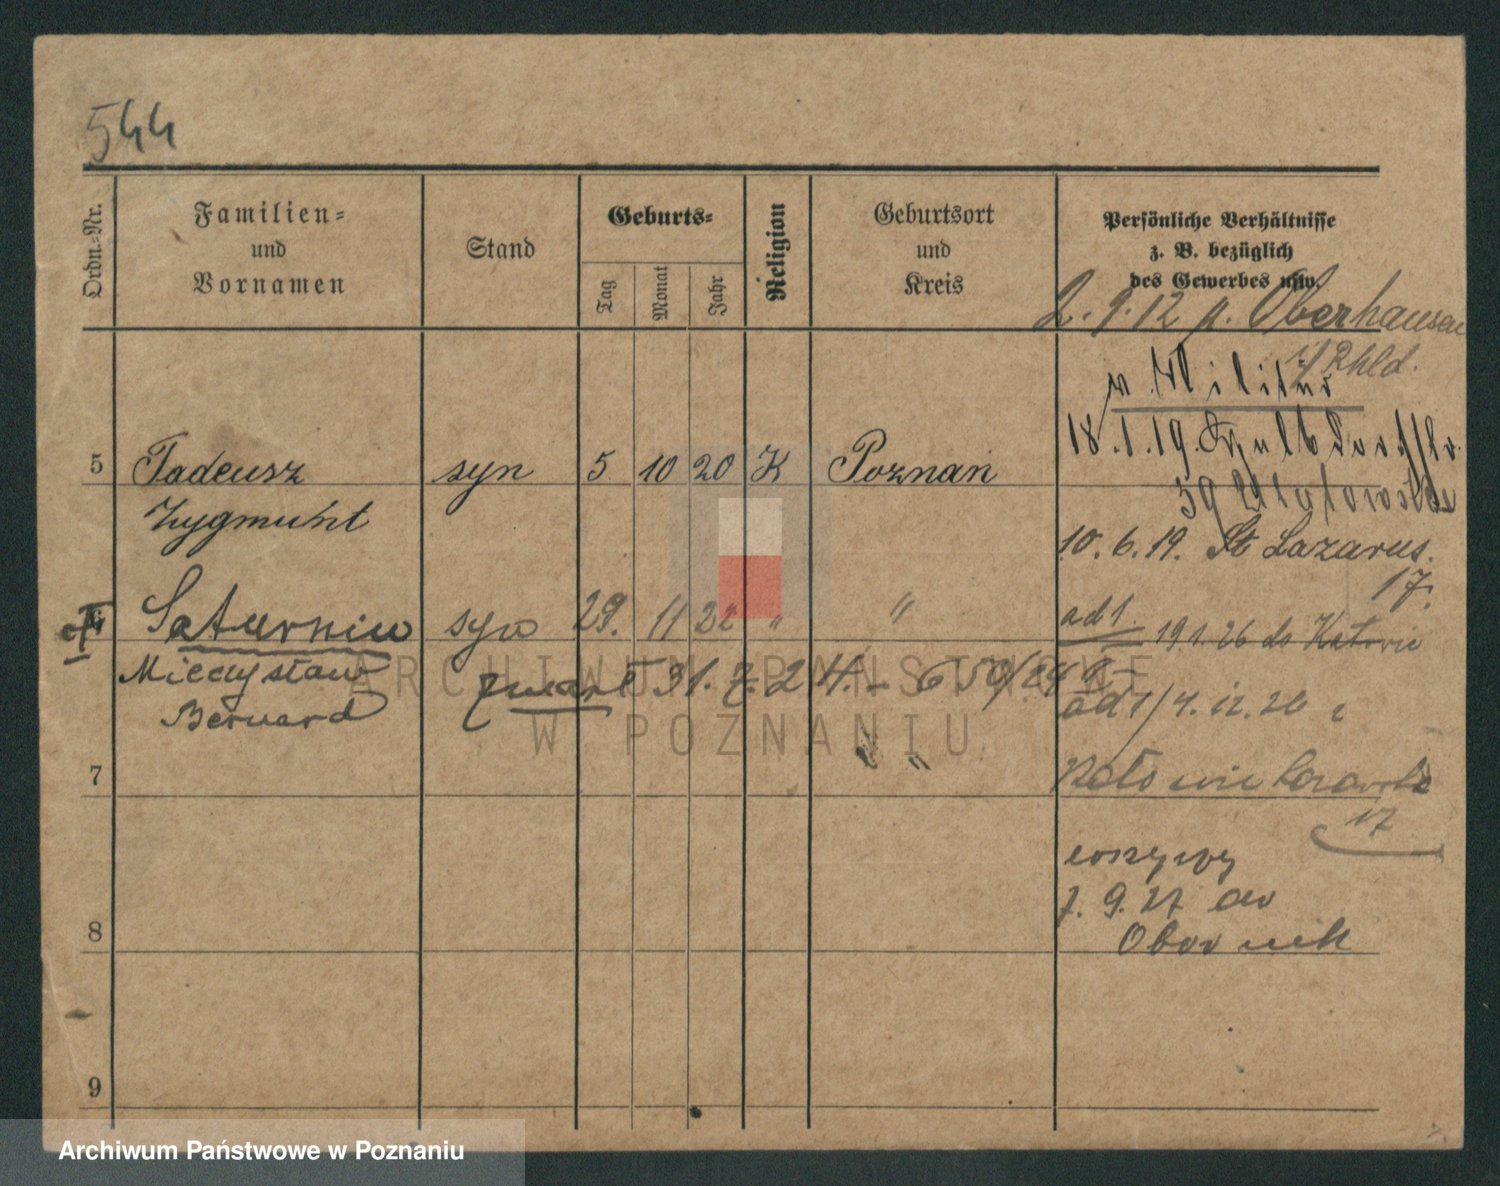 544
Ordn.=Nr.
Familien=
und
Vornamen
Stand
Geburts=
Tag
Monat
Jahr
Religion
Geburtsort
und
Kreis
Persönliche Verhältnisse
z. B. bezüglich
des Gewerbes usw.
2. 9. 12 n. Oberhausen
Rhld.
v. Militär
18. 1. 19.
5 Tadeusz syn 5 10 20 K Poznań
39
Zygmunt
10. 6. 19. St Lazarus.
17.
Saturnin syn 29. 11 22 " "
ad 1. 19.1.26 do Katowic
Mieczysław
zmarł 31. 7. 24.
Bernard
ad 1/ 4. 12. 26
"
7
17
7. 9. 27 do
8 Obornik
9
ARCHIWUM PAŃSTWOWE
W POZNANIU
Archiwum Państwowe w Poznaniu